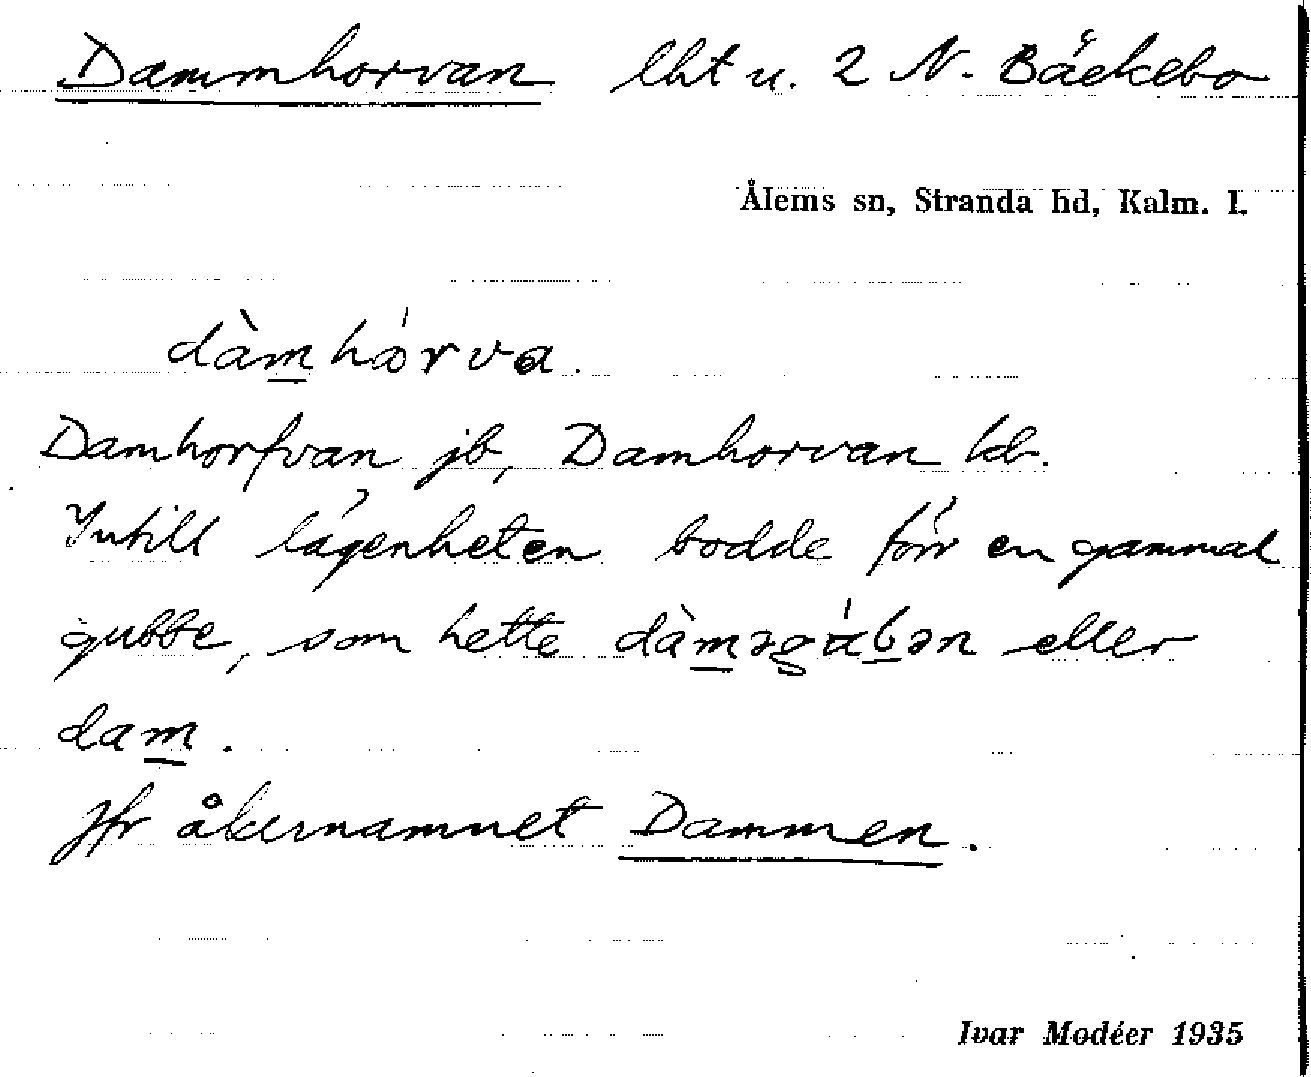 Dammhorvan lht u. 2 N. Bäckebo
Ålems sn, Stranda hd, Kalm. l.
dàmhɔ́rva.
Damhorfvan jb, Damhorvan kb.
Intill lägenheten bodde förr en gammal
gubbe, som hette dàməgúbən eller
dam.
Jfr åkernamnet Dammen.
Ivar Modéer 1935